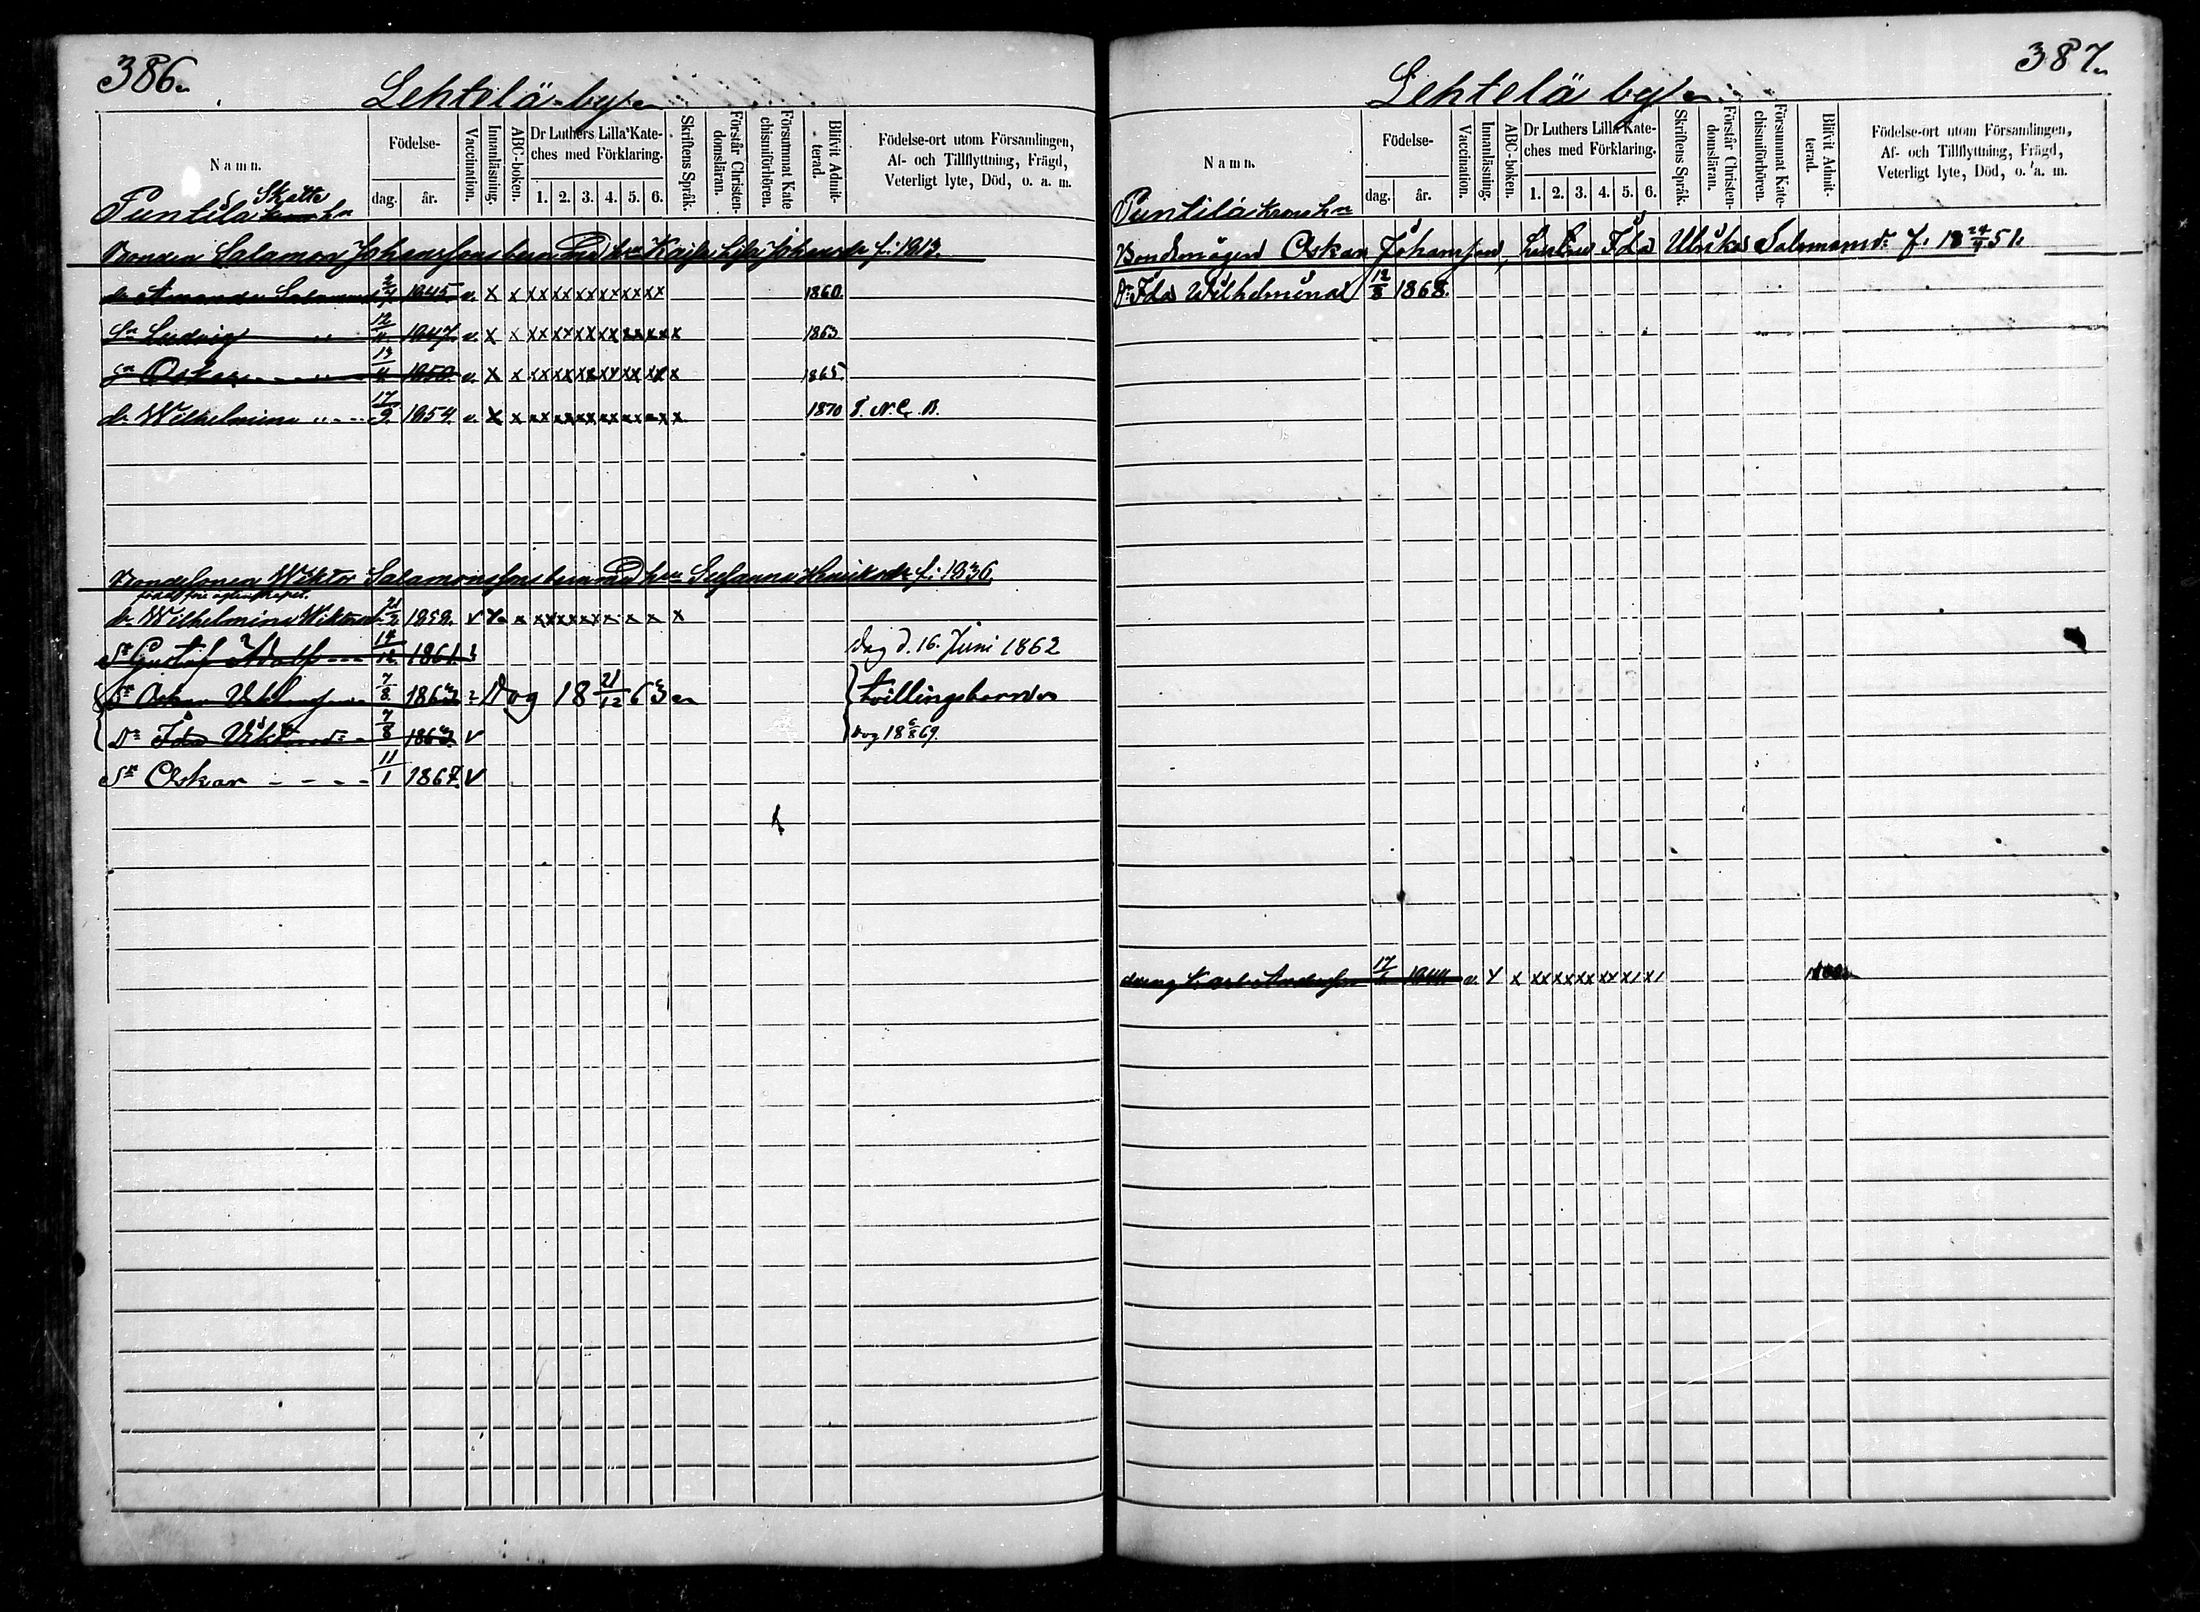 386.
Lehtelä by
Namn.
Födelse-
dag.
år.
Vaccination.
Innanläsning.
ABC-boken.
Dr Luthers Lilla Kate-
ches med Förklaring.
1. 2. 3. 4. 5. 6.
Skriftens Språk.
Förstår Christen-
domsläran.
Försummat Kate
chismiförhören.
Blivit Admit-
terad.
Födelse-ort utom Församlingen,
Af- och Tillflyttning, Frägd,
Veterligt lyte, Död, o. a. m.
Skatte
Puntila
Bonden Salamon Johansson Kajsa Lisa Johansdr f: 1813.
dr Amanda 1845. v. x x xx xx xx xx xx xx 1860.
Sn Ludvig 12/4 1847. v. x x xx xx xx xx xx xx x 1863
Sn Oskar 1850. v. x x xx xx xx xx xx xx x 1865.
dr Wilhelmina 17/9. 1854. v. x x xx xx xx xx xx xx x 1870 T. N. C. B.
Bondesonen Wiktor Salamonsson Susanna Henriksdr f: 1836.
dr Wilhelmina 1858. v
Sn Gustaf Adolf 14/12 1861. Dog d. 16. Juni 1862
Sn Oskar 7/8 1863 Dog 18 21/12 63 Tvillingsbarn
Dr Ida 7/8 1863 v Dog 18 6/8 69.
Sn Oskar 11/1 1867. v
387.
Lehtelä by
Namn.
Födelse-
dag.
år.
Vaccination.
Innanläsning.
ABC-boken.
Dr Luthers Lilla Kate-
ches med Förklaring.
1. 2. 3. 4. 5. 6.
Skriftens Språk.
Förstår Christen-
domsläran.
Försummat Kate-
chismiförhören.
Blivit Admit-
terad.
Födelse-ort utom Församlingen,
Af- och Tillflyttning, Frägd,
Veterligt lyte, Död, o. a. m.
Puntila
Bondemågen Oskar Johansson, Ida Ulrika Salomonsd: f. 18 24/4 51.
Dr Ida Wilhelmina 12/8 1868.
dreng 1844 v. x x xx xx xx xx x1 x1